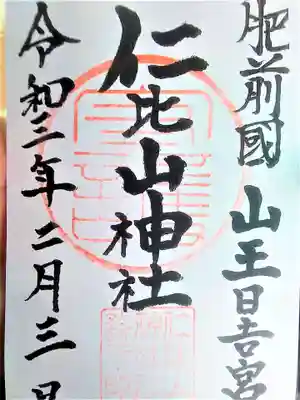 肥前國 山王日吉宮
仁比山神社
令和三年二月三日